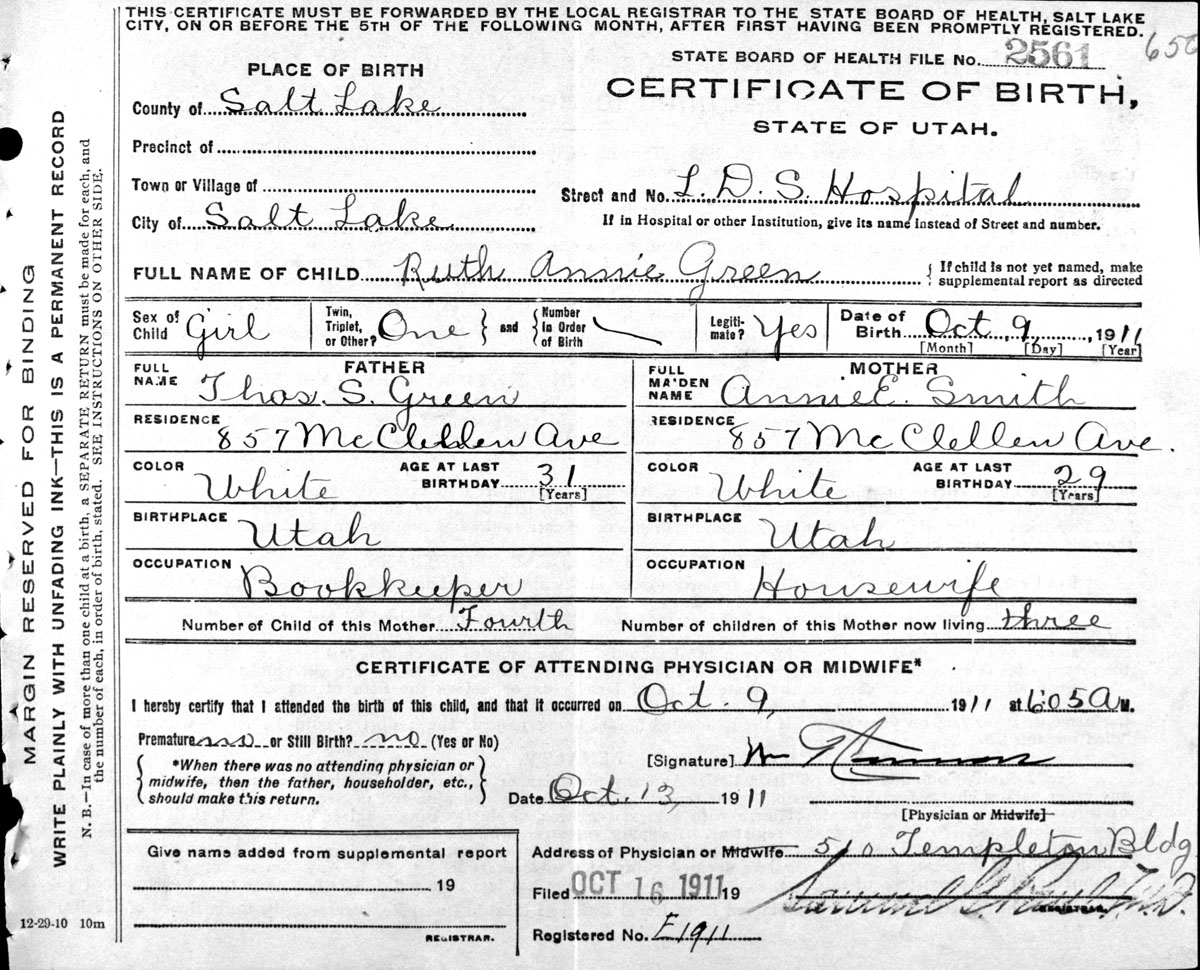 THIS CERTIFICATE MUST BE FORWARDED BY THE LOCAL REGISTRAR TO THE STATE BOARD OF HEALTH, SALT LAKE
CITY, ON OR BEFORE THE 5TH OF THE FOLLOWING MONTH, AFTER FIRST HAVING BEEN PROMPTLY REGISTERED.
STATE BOARD OF HEALTH FILE No. 2561
PLACE OF BIRTH
CERTIFICATE OF BIRTH,
STATE OF UTAH.
County of Salt Lake
Precinct of
Town or Village of
Street and No. L. D. S. Hospital
City of Salt Lake
If in Hospital or other Institution, give its name instead of Street and number.
FULL NAME OF CHILD Ruth Annie Green
{ If child is not yet named, make
supplemental report as directed
Sex of Child Girl
Twin, Triplet, or Other? One } and { Number In Order of Birth
Legitimate? Yes
Date of Birth Oct 9, 1911
[Month] [Day] [Year]
FATHER
FULL NAME Thos. S. Green
MOTHER
FULL MAIDEN NAME Annie E. Smith
RESIDENCE 857 McClellen Ave
RESIDENCE 857 McClellen Ave.
COLOR White AGE AT LAST BIRTHDAY 31 [Years]
COLOR White AGE AT LAST BIRTHDAY 29 [Years]
BIRTHPLACE Utah
BIRTHPLACE Utah
OCCUPATION Bookkeeper
OCCUPATION Housewife
Number of Child of this Mother Fourth Number of children of this Mother now living three
CERTIFICATE OF ATTENDING PHYSICIAN OR MIDWIFE*
I hereby certify that I attended the birth of this child, and that it occurred on Oct. 9, 1911 at 6:05 A M.
Premature no or Still Birth? no (Yes or No)
*When there was no attending physician or
midwife, then the father, householder, etc.,
should make this return.
[Signature] Wm
Date Oct. 13, 1911
[Physician or Midwife]
Give name added from supplemental report
19
REGISTRAR.
Address of Physician or Midwife 510 Templeton Bldg
Filed OCT 16 1911 19
Samuel G. Paul M.D.
REGISTRAR.
Registered No. E1911
12-29-10 10m
MARGIN RESERVED FOR BINDING
WRITE PLAINLY WITH UNFADING INK—THIS IS A PERMANENT RECORD
N. B.—In case of more than one child at a birth, a SEPARATE RETURN must be made for each, and
the number of each, in order of birth, stated. SEE INSTRUCTIONS ON OTHER SIDE.